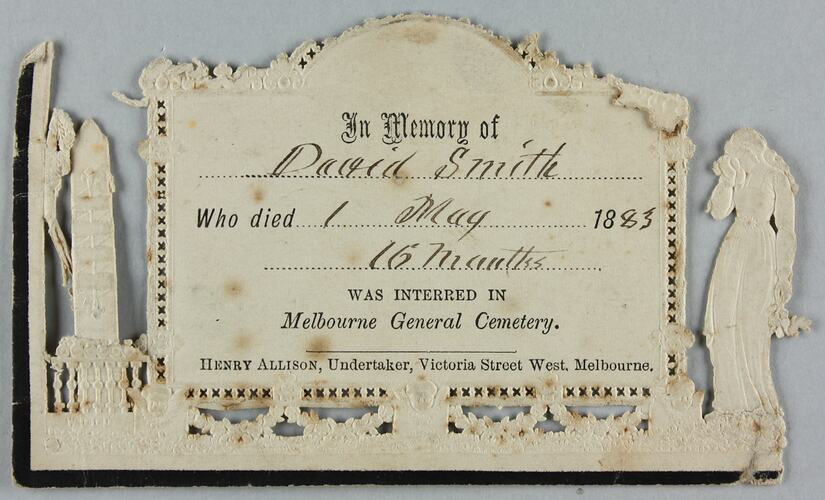 In Memory of
David Smith
Who died 1 May 1883
16 Months
WAS INTERRED IN
Melbourne General Cemetery.
HENRY ALLISON, Undertaker, Victoria Street West, Melbourne.